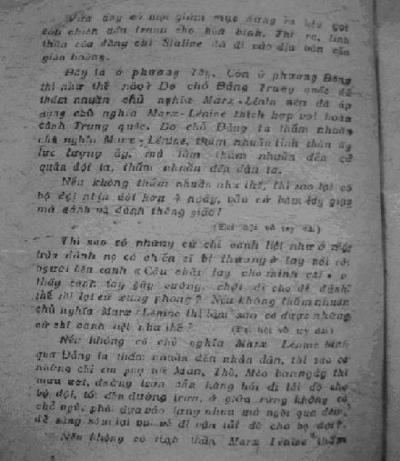 Vừa đây có một giám mục đứng ra kêu gọi
chiến đấu tranh cho hòa bình. Thì ra, tinh
thần của đồng chí Staline đã đi vào địa bàn của
giáo hoàng.
Đấy là ở phương Tây. Còn ở phương Đông
thì như thế nào? Do chỗ Đảng Trung quốc đã
thấm nhuần chủ nghĩa Marx - Lénine nên đã áp
dụng chủ nghĩa Marx - Lénine thích hợp với hoàn
cảnh Trung quốc. Do chỗ Đảng ta thấm nhuần
chủ nghĩa Marx - Lénine, thấm nhuần tinh thần ấy
lực lượng ấy, mà làm thấm nhuần đến cả
quân đội ta, thấm nhuần đến dân ta.
Nếu không thấm nhuần như thế, thì sao lại có
bộ đội nhịn đói hơn 4 ngày, vẫn cứ bám lấy giặc
mà đánh và đánh thắng giặc!
(Đại hội vỗ tay dài)
Thì sao có những cử chỉ oanh liệt như ở một
trận đánh nọ có chiến sĩ bị thương ở tay nói với
người bên cạnh « Cậu chặt tay cho mình cái »
thấy cánh tay gãy vướng, chặt đi cho dễ đánh
thế rồi lại cứ xung phong? Nếu không thấm nhuần
chủ nghĩa Marx - Lénine thì làm sao có được những
cử chỉ oanh liệt như thế? (Đại hội vỗ tay dài)
Nếu không có chủ nghĩa Marx Lénine
qua Đảng ta thấm nhuần đến nhân dân, thì sao có
những chị em phụ nữ Mán, Thổ, Mèo ban ngày thì
mưa rơi, đường trơn vẫn hăng hái đi tải đồ cho
bộ đội, tối đến đường trơn, ở giữa rừng không có
chỗ ngủ, phải dựa vào lưng nhau mà ngồi qua đêm,
để sáng sớm lại vui vẻ đi vận tải đồ cho bộ đội?
Nếu không có tinh thần Marx Lénine thấm